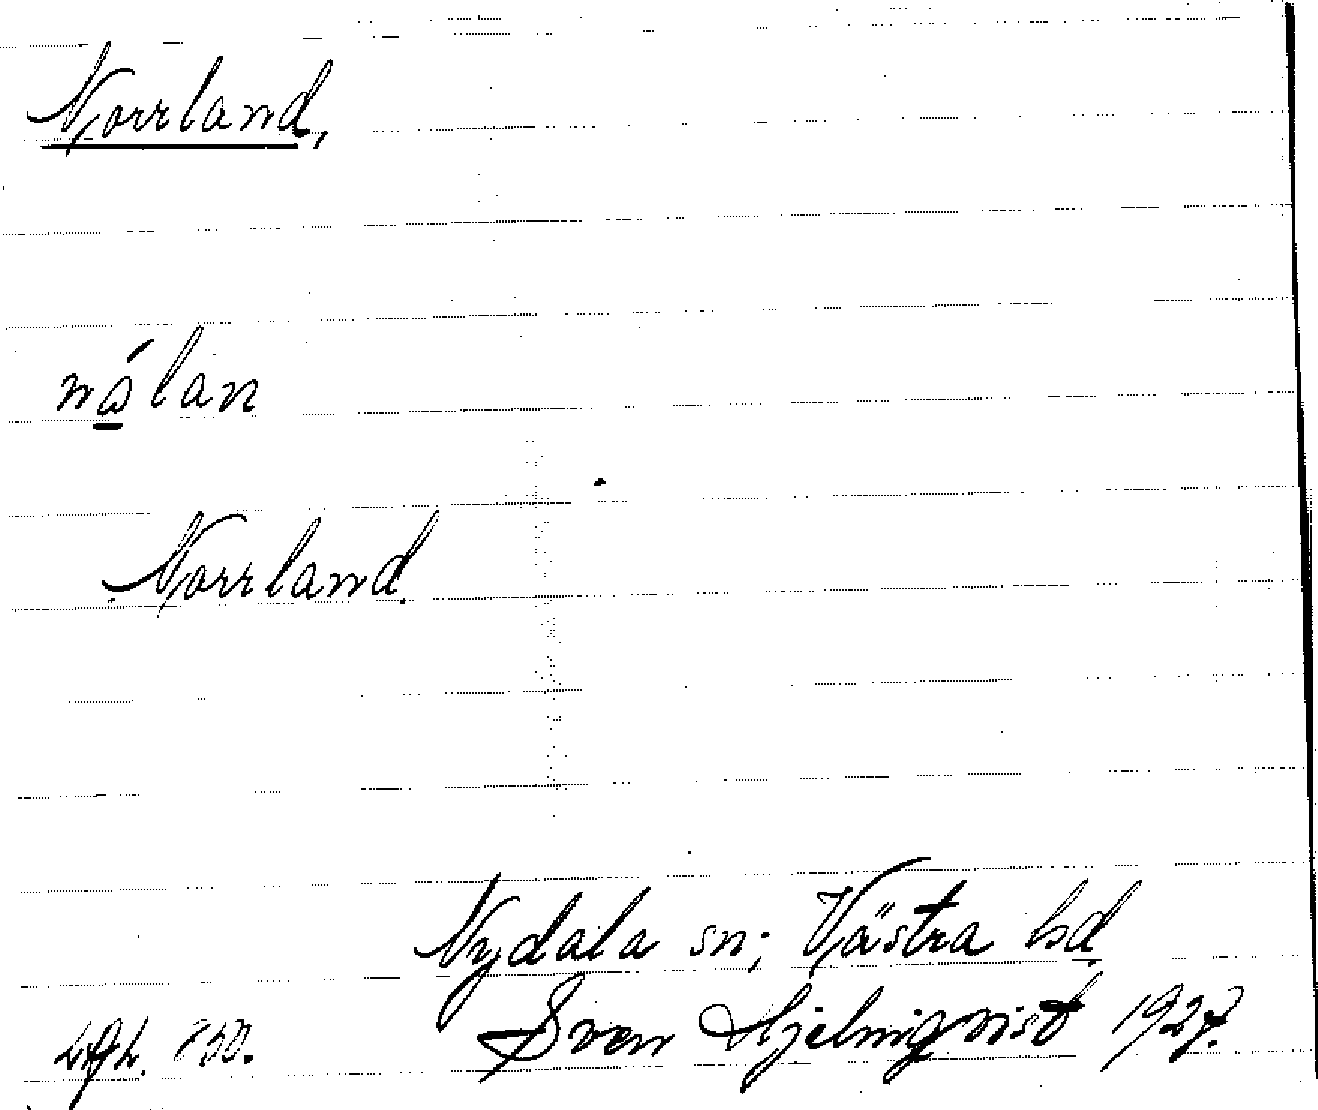 Norrland,
nálan
Norrland.
Nydala sn; Västra hd
Sven Hjelmqvist 1927.